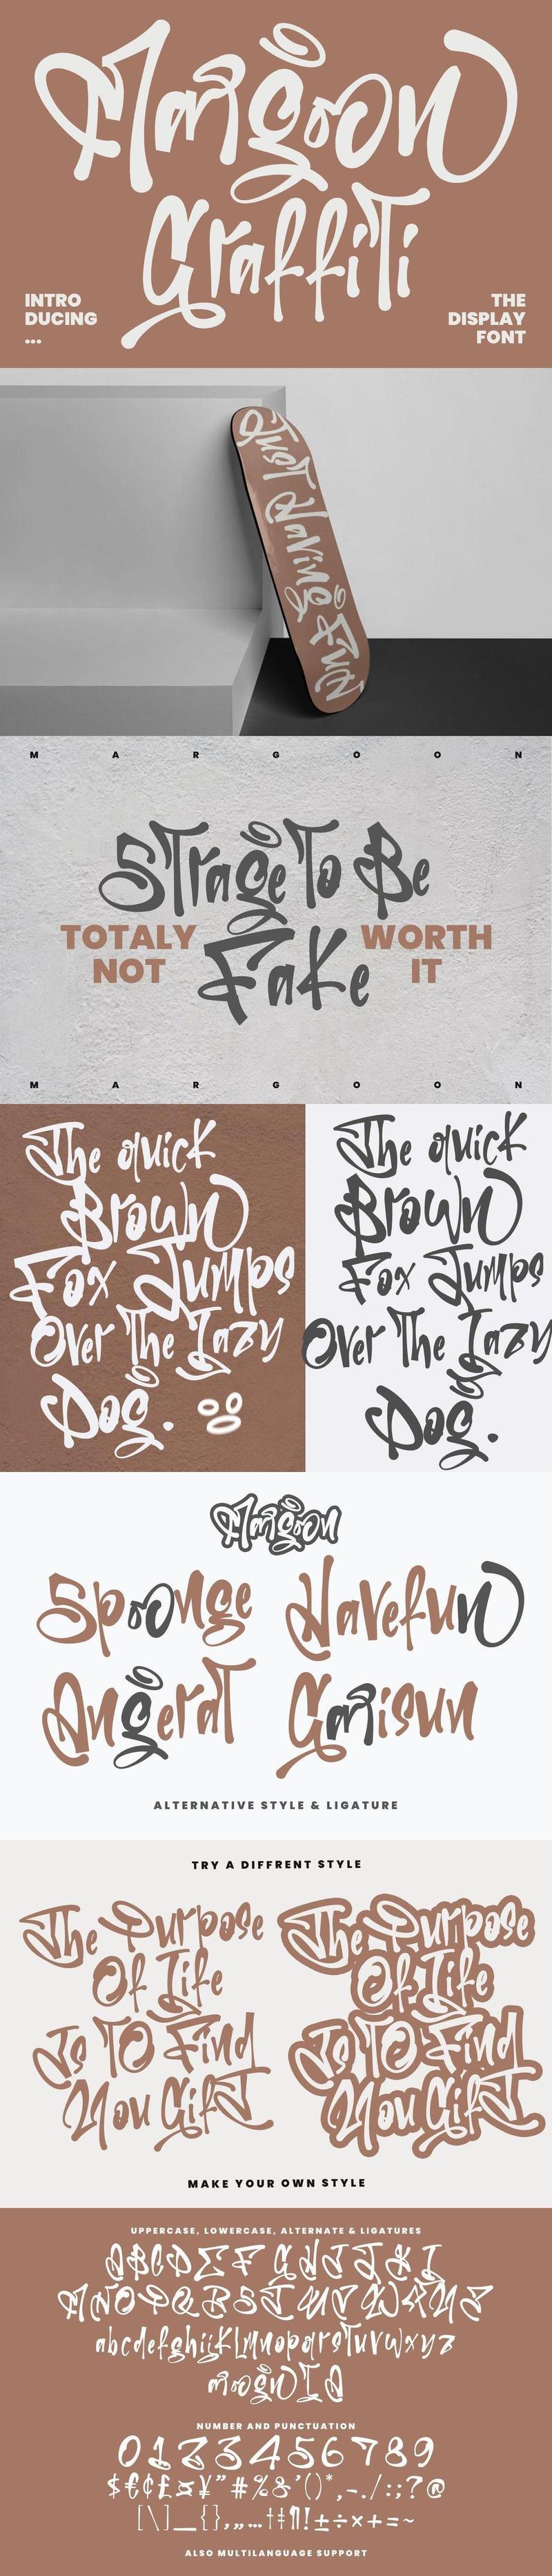 Margoon
Graffiti
INTRO
DUCING
...
THE
DISPLAY
FONT
Just Having Fun
M A R G O O N
Strage To Be
TOTALY
NOT
Fake
WORTH
IT
M A R G O O N
The quick
Brown
Fox Jumps
Over The Lazy
Dog.
The quick
Brown
Fox Jumps
Over The Lazy
Dog.
Margoon
Sponge Havefun
Angerat Garisun
ALTERNATIVE STYLE & LIGATURE
TRY A DIFFRENT STYLE
The Purpose
Of Life
Is TO Find
You Gift
The Purpose
Of Life
Is TO Find
You Gift
MAKE YOUR OWN STYLE
UPPERCASE, LOWERCASE, ALTERNATE & LIGATURES
ABCDEFGHIJKL
MNOPQRSTUVWXYZ
abcdefghijklmnopqrstuvwxyz
NUMBER AND PUNCTUATION
0123456789
$€¢£¤¥"#%&'()*,-./:;?@
[\]_{}‚„…†‡¶!±÷×+=~
ALSO MULTILANGUAGE SUPPORT